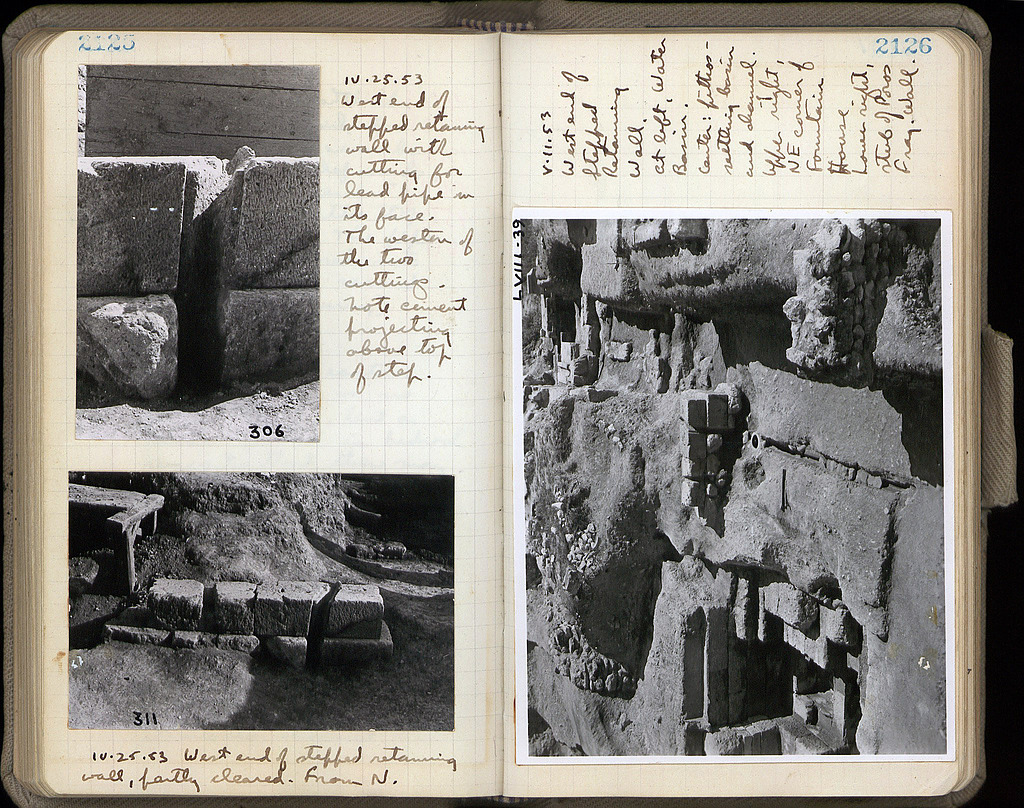 2125
IV.25.53
West end of
stepped retaining
wall with
cutting for
lead pipe in
its face.
The western of
the two
cuttings.
Note cement
projecting
above top
of step.
306
311
IV.25.53 West end of stepped retaining
wall, partly cleared. From N.
2126
V.11.53
West end of
Stepped
Retaining
Wall.
At left, Water
Basin.
Center: pithos-
settling basin
and channel.
Upper right,
NE corner of
Fountain
House.
Lower right,
stub of Poros
Frag. Wall.
LVIII-39